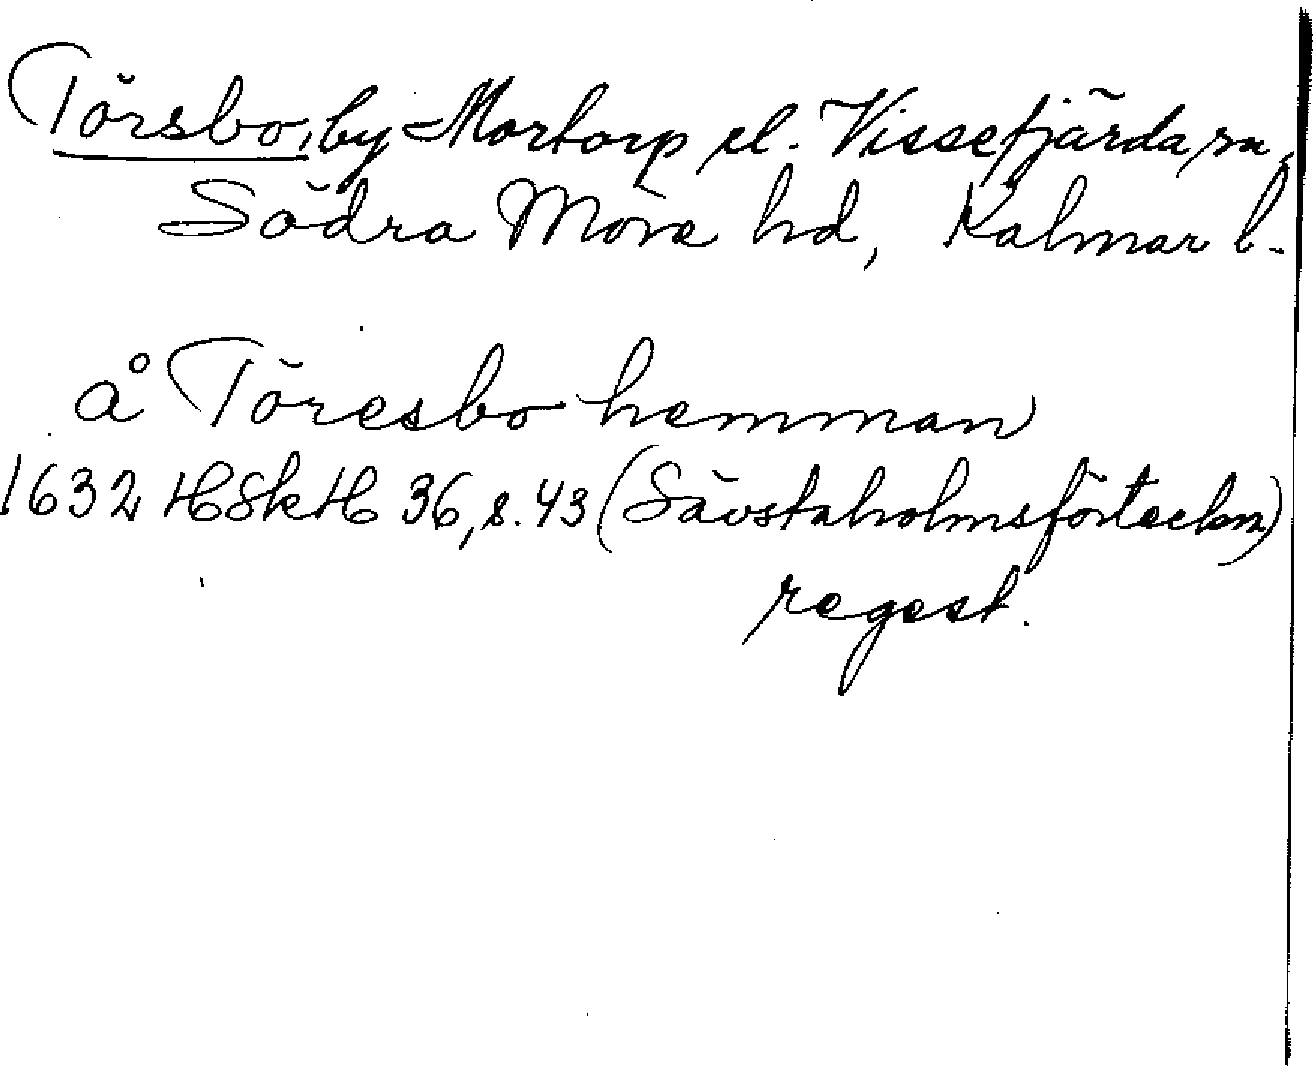 Törsbo, by Mortorp el. Vissefjärda sn,
Södra Möre hd, Kalmar l.
å Töresbo hemman
1632 HSkH 36, s. 43 (Sävstaholmsförteckn)
regest.